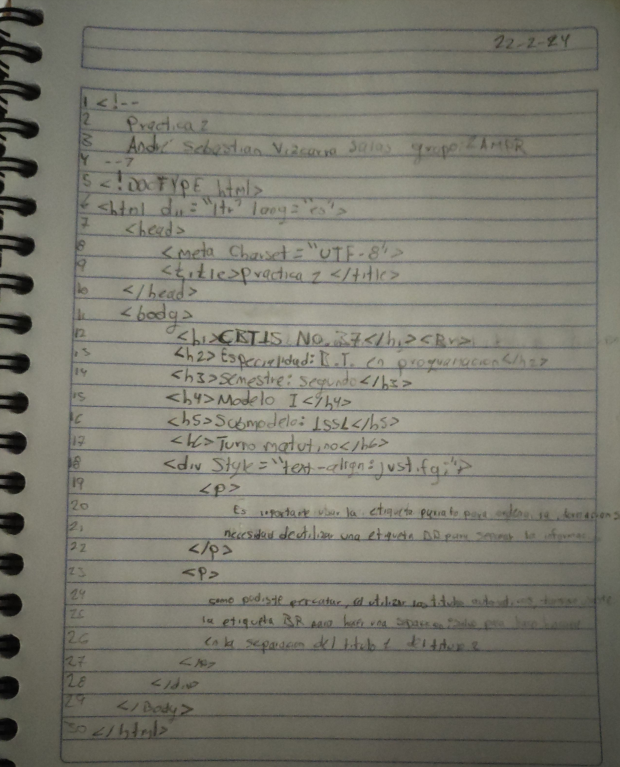 22-2-24
1 <!--
2 Practica 2
3 André Sebastian Vizcarra Salas grupo: 2AMPR
4 -->
5 <!DOCTYPE html>
6 <html dir="ltr" lang="es">
7 <head>
8 <meta Charset="UTF-8">
9 <title>practica 2 </title>
10 </head>
11 <body>
12 <h1>CBTIS No. 37</h1><Br>
13 <h2>Especialidad: en programacion</h2>
14 <h3>Semestre: segundo</h3>
15 <h4>Modelo I</h4>
16 <h5>Submodelo: 1SS1</h5>
17 <h6>Turno matutino</h6>
18 <div Style="text-align: justify;">
19 <p>
20 Es importante usar la etiqueta para
21 necesidad de utilizar una etiqueta BR para
22 </p>
23 <p>
24 como podiste percatar, al utilizar los titulos
25 la etiqueta BR para una
26 en la separacion del titulo 1 del titulo 2
27 </p>
28 </div>
29 </Body>
30 </html>